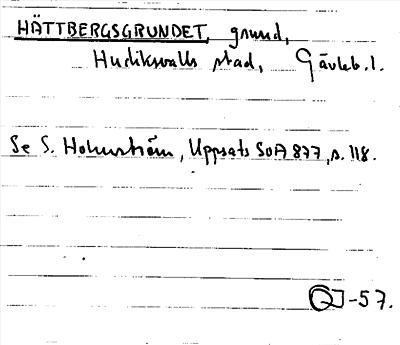 HÄTTBERGSGRUNDET, grund,
Hudiksvalls stad, Gävleb. l.
Se S. Holmström, Uppsats SOA 877, s. 118.
OJ-57.